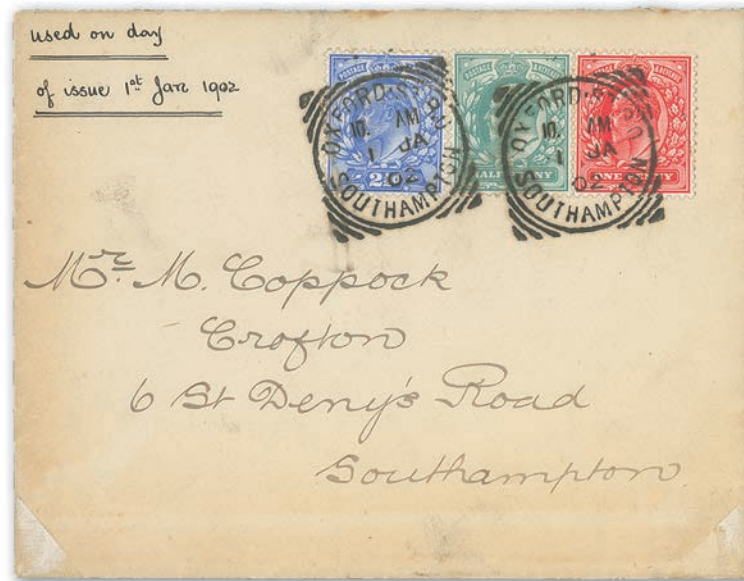 used on day
of issue 1st Jan 1902
POSTAGE & REVENUE
2½D
HALFPENNY
ONE PENNY
OXFORD ST B.O.
10. AM
1 JA
02
SOUTHAMPTON
OXFORD ST B.O.
10. AM
1 JA
02
SOUTHAMPTON
Mr. M. Coppock
Crofton
6 St Deny's Road
Southampton